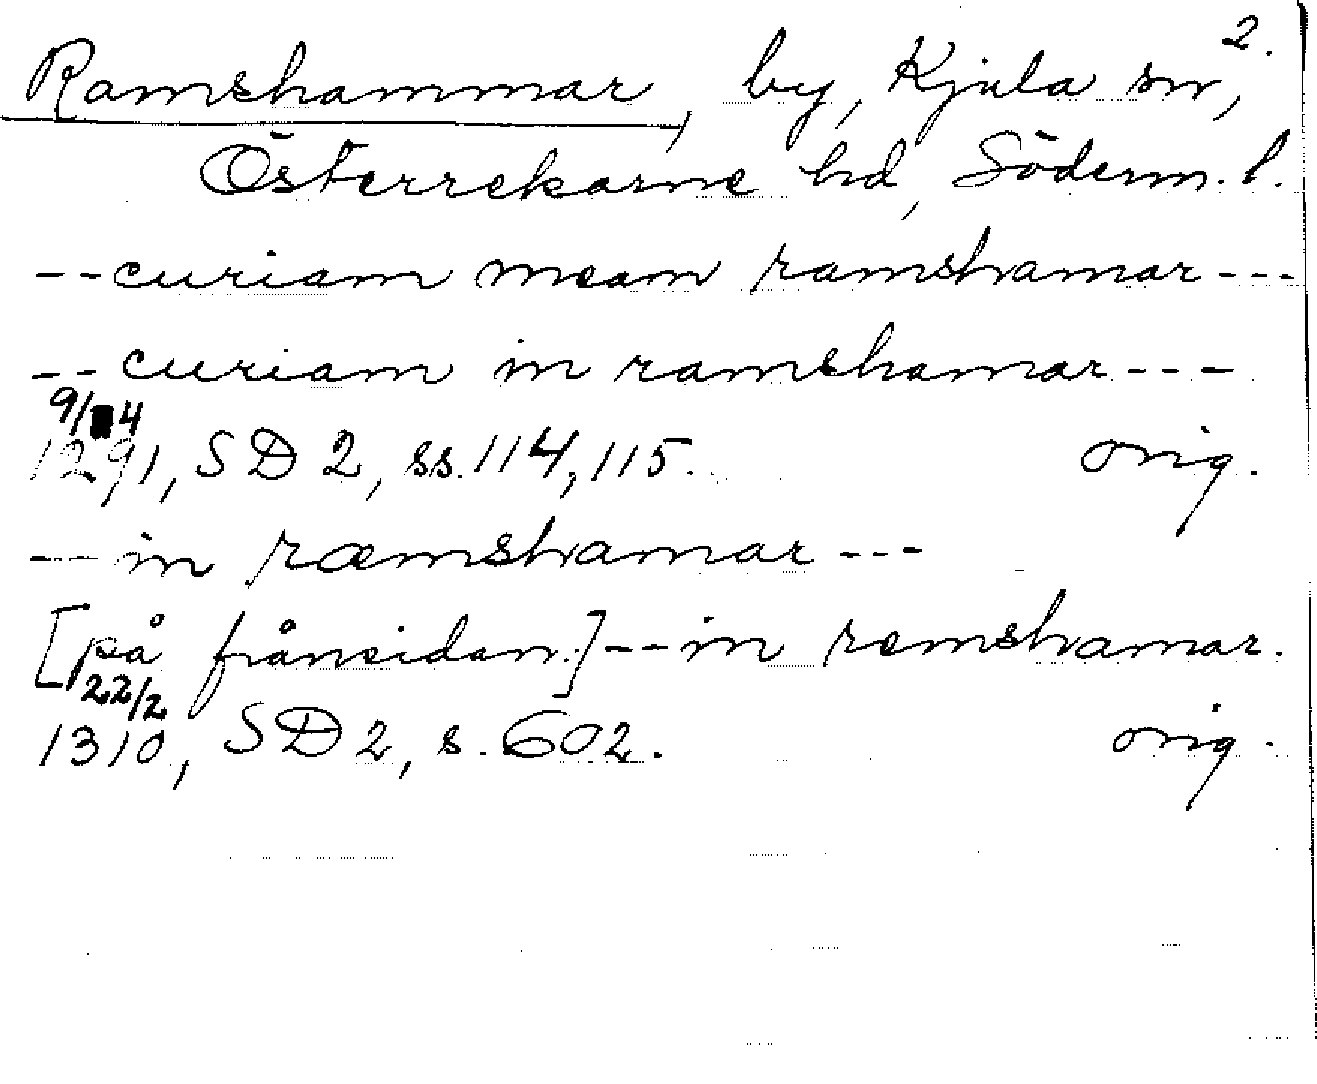 2.
Ramshammar, by, Kjula sn,
Österrekarne hd, Söderm. l.
--curiam meam ramshamar---
--curiam in ramshamar---
9/4
1291, SD 2, ss. 114, 115. orig.
--in ræmshamar---
[på frånsidan]--in remshamar.
22/2
1310, SD 2, s. 602. orig.